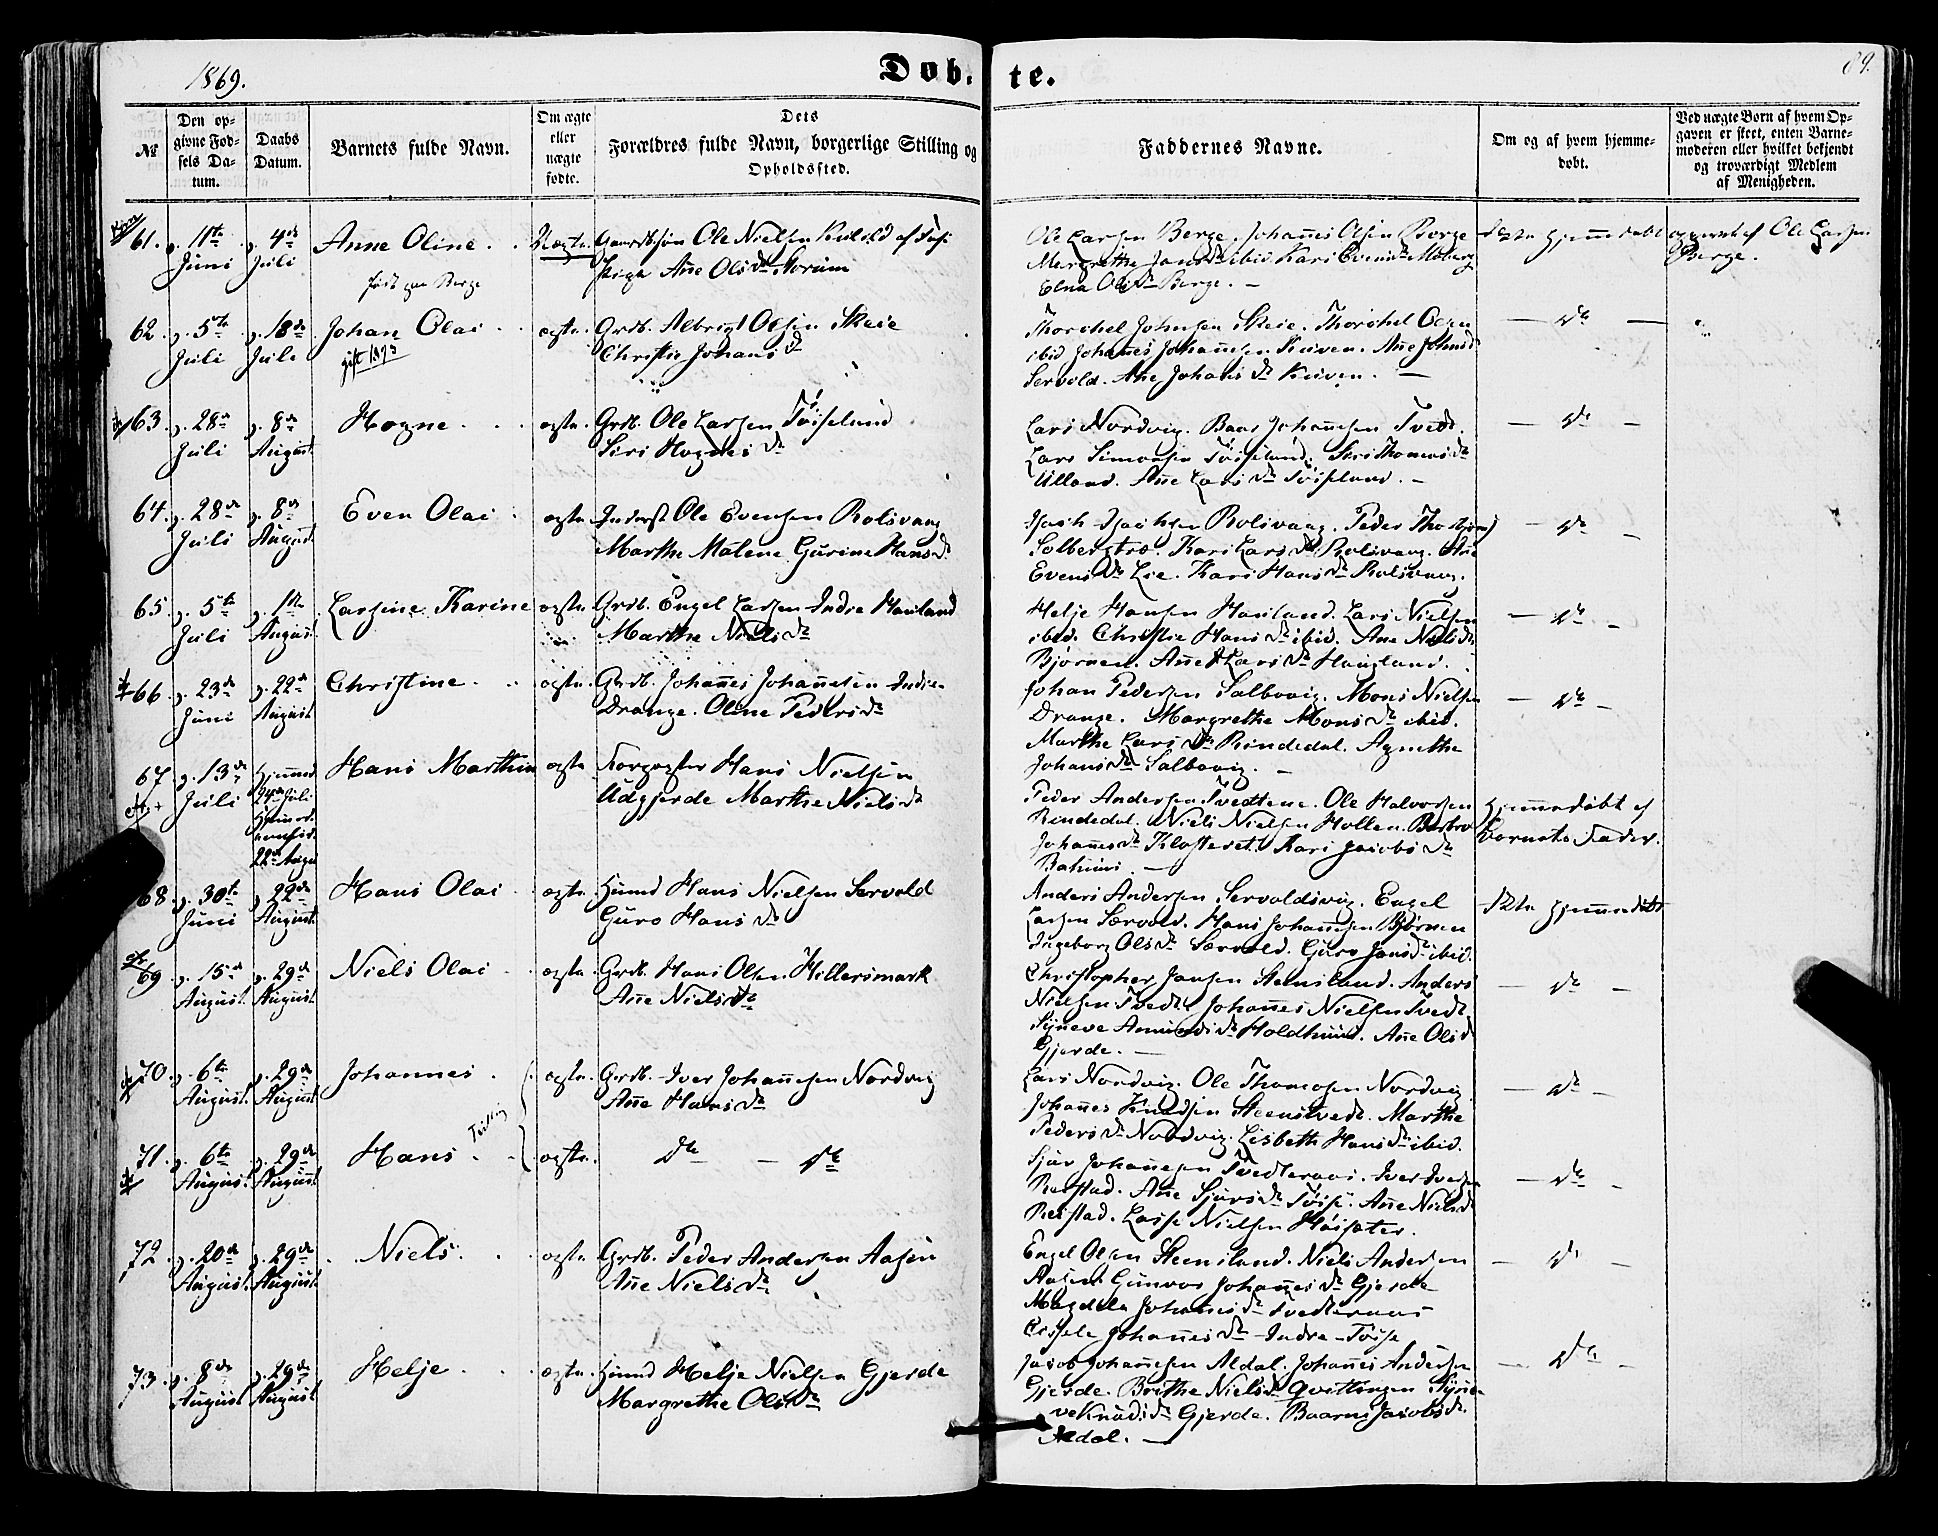 1869.
Døb.
te.
89.
№
Den op-
givne Fød-
sels Da-
tum.
Daabs
Datum.
Barnets fulde Navn.
Om ægte
eller
uægte
fødte.
Dets
Forældres fulde Navn, borgerlige Stilling og
Opholdssted.
Faddernes Navne.
Om og af hvem hjemme-
døbt.
Ved uægte Børn af hvem Op-
gaven er skeet, enten Barne-
moderen eller hvilket bekjendt
og troværdigt Medlem
af Menigheden.
61. 11te Juni
4de Juli
Anne Oline
født paa Berge
Uægte
Gaardbs søn Ole Nielsen
Pige Ane Olsdr
Ole Larsen Berge. Johannes Olsen Berge
Margrethe Jansdr ibid. Kari Evensdr
Elna Olsdr Berge.
Ikke hjemmedøbt
opgivet af Ole Larsen
Berge.
62. 5te Juli
18de Juli
Johan Olai
ægte
Grdb. Albrigt Olsen Skeie
Christie Johansdr
Thorchel Johnsen Skeie. Thorchel
ibid Johannes Johannesen
Servold. Ane Johansdr
dº
63. 28de Juli
8de August
Hogne
ægte
Grdb. Ole Larsen Tøiseland
Siri Hognesdr
Lars Nordvig. Baar Johannesen Tvedt.
Lars Simonsen Tøiseland. Siri Thomasdr
Ulland. Ane Larsdr Tøiseland.
dº
64. 28de Juli
8de August
Even Olai
ægte
Inderst Ole Evensen Rolsvaag
Marthe Malene Gurine Hansdr
Isach Isachsen Rolsvaag. Peder
Solbergtræ. Kari Larsdr Rolsvaag. Ane
Evensdr Lie. Kari Hansdr Rolsvaag.
dº
65. 5te Juli
1ste August
Larsine Karine
ægte
Grdb. Engel Larsen Indre Hauland
Marthe Nielsdr
Helje Hansen Hauland. Lars Nielsen
ibid. Christie Hansdr ibid. Ane Nielsdr
Bjørnen. Ane Larsdr Haugland.
dº
66. 23de Juni
22de August
Christine
ægte
Grdb. Johannes Johannesen Indre
Drange. Oline Pedersdr
Johan Pedersen Salbovig. Mons Nielsen
Drange. Margrethe Monsdr ibid.
Marthe Larsdr Rindedal. Agnethe
Johansdr Salbovig.
dº
67. 13de Juli
hjemmed
24de Juli
22de Augu
Hans Marthin
ægte
Hans Nielsen
Udgjerde Marthe Nielsdr
Peder Andersen Tvedtene. Ole Halvorsen
Rindedal. Niels Nielsen Hollen. Barbro
Johannesdr Klosteret. Kari Jacobsdr
Hjemmedøbt af
Barnets Fader.
68. 30te Juni
22de August
Hans Olai
ægte
Huusmd Hans Nielsen Servold
Guro Hansdr
Anders Andersen Servoldsvig. Engel
Larsen Særvold. Hans Johannesen Bjørnen
Ingeborg Olsdr Særvold. Guro Jansdr ibid.
Ikke hjemmedøbt
69. 15de August
29de August
Niels Olai
ægte
Grdb. Hans Olsen Hillersmark
Ane Nielsdr
Christopher Jansen Steensland. Anders
Nielsen Tvedt. Johannes Nielsen Tvedt
Syneve Amundsdr Holdhuus. Ane Olsdr
Gjerde.
dº
70. 6te August
29de August
Johannes
Tvilling
ægte
Grdb. Iver Johannesen Nordvig
Ane Hansdr
Lars Nordvig. Ole Thomasen Nordvig
Johannes Knudsen Steenstvedt. Marthe
Pedersdr Nordvig. Lisbeth Hansdr ibid.
dº
71. 6te August
29de August
Hans
ægte
dº dº
Sjur Johannesen Tvedteraas. Iver Iversen
Revstad. Ane Sjursdr Tøise. Ane Nielsdr
Revstad. Lasse Nielsen Høisæter.
dº
72. 20de August
29de August
Niels
ægte
Grdb. Peder Andersen Aasen
Ane Nielsdr
Engel Olsen Steensland. Niels Andersen
Aasen. Gunvor Johannesdr Gjerde
Magdela Johannesdr Tvedteraas
Cissele Johannesdr Indre-Tøise
dº
73. 8de August
29de August
Helje
ægte
Huusmd Helje Nielsen Gjerde
Margrethe Olsdr
Jacob Johannesen Aldal. Johannes Andersen
Gjerde. Brithe Nielsdr Qvittingen Syne-
ve Knudsdr Gjerde. Baarni Jacobsdr
Aldal.
dº